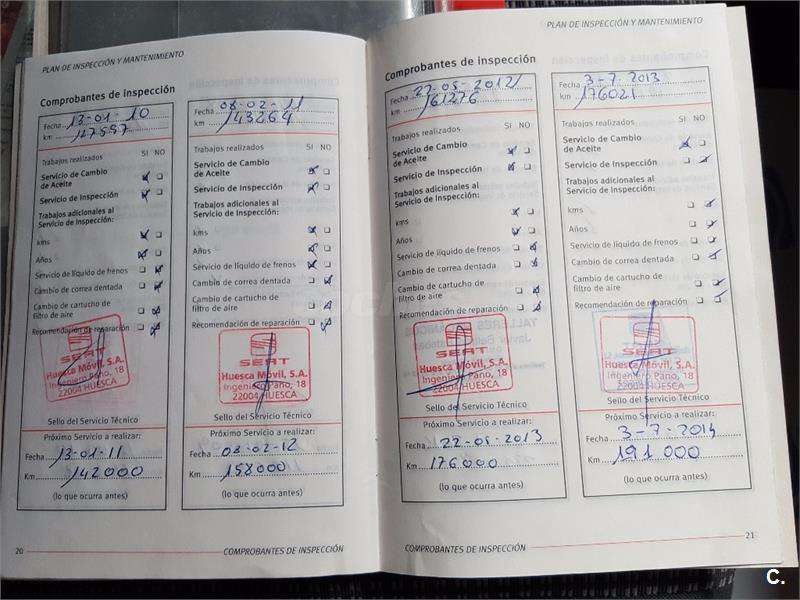 PLAN DE INSPECCIÓN Y MANTENIMIENTO
Comprobantes de inspección
Fecha 13-01-10
km 127597
Trabajos realizados SI NO
Servicio de Cambio
de Aceite
Servicio de Inspección
Trabajos adicionales al
Servicio de Inspección:
kms
Años
Servicio de líquido de frenos
Cambio de correa dentada
Cambio de cartucho de
filtro de aire
Recomendación de reparación
SEAT
Huesca Móvil, S.A.
Ingeniero Pano, 18
22004 HUESCA
Sello del Servicio Técnico
Próximo Servicio a realizar:
Fecha 13-01-11
Km 142000
(lo que ocurra antes)
Fecha 08-02-11
km 143264
Trabajos realizados SI NO
Servicio de Cambio
de Aceite
Servicio de Inspección
Trabajos adicionales al
Servicio de Inspección:
kms
Años
Servicio de líquido de frenos
Cambio de correa dentada
Cambio de cartucho de
filtro de aire
Recomendación de reparación
SEAT
Huesca Móvil, S.A.
Ingeniero Pano, 18
22004 HUESCA
Sello del Servicio Técnico
Próximo Servicio a realizar:
Fecha 08-02-12
Km 158000
(lo que ocurra antes)
20
COMPROBANTES DE INSPECCIÓN
PLAN DE INSPECCIÓN Y MANTENIMIENTO
Comprobantes de inspección
Fecha 22-05-2012
km 161276
Trabajos realizados SI NO
Servicio de Cambio
de Aceite
Servicio de Inspección
Trabajos adicionales al
Servicio de Inspección:
kms
Años
Servicio de líquido de frenos
Cambio de correa dentada
Cambio de cartucho de
filtro de aire
Recomendación de reparación
SEAT
Huesca Móvil, S.A.
Ingeniero Pano, 18
22004 HUESCA
Sello del Servicio Técnico
Próximo Servicio a realizar:
Fecha 22-05-2013
Km 176.000
(lo que ocurra antes)
Fecha 3-7-2013
km 176021
Trabajos realizados SI NO
Servicio de Cambio
de Aceite
Servicio de Inspección
Trabajos adicionales al
Servicio de Inspección:
kms
Años
Servicio de líquido de frenos
Cambio de correa dentada
Cambio de cartucho de
filtro de aire
Recomendación de reparación
SEAT
Huesca Móvil, S.A.
Ingeniero Pano, 18
22004 HUESCA
Sello del Servicio Técnico
Próximo Servicio a realizar:
Fecha 3-7-2014
Km 191 000
(lo que ocurra antes)
COMPROBANTES DE INSPECCIÓN
21
C.